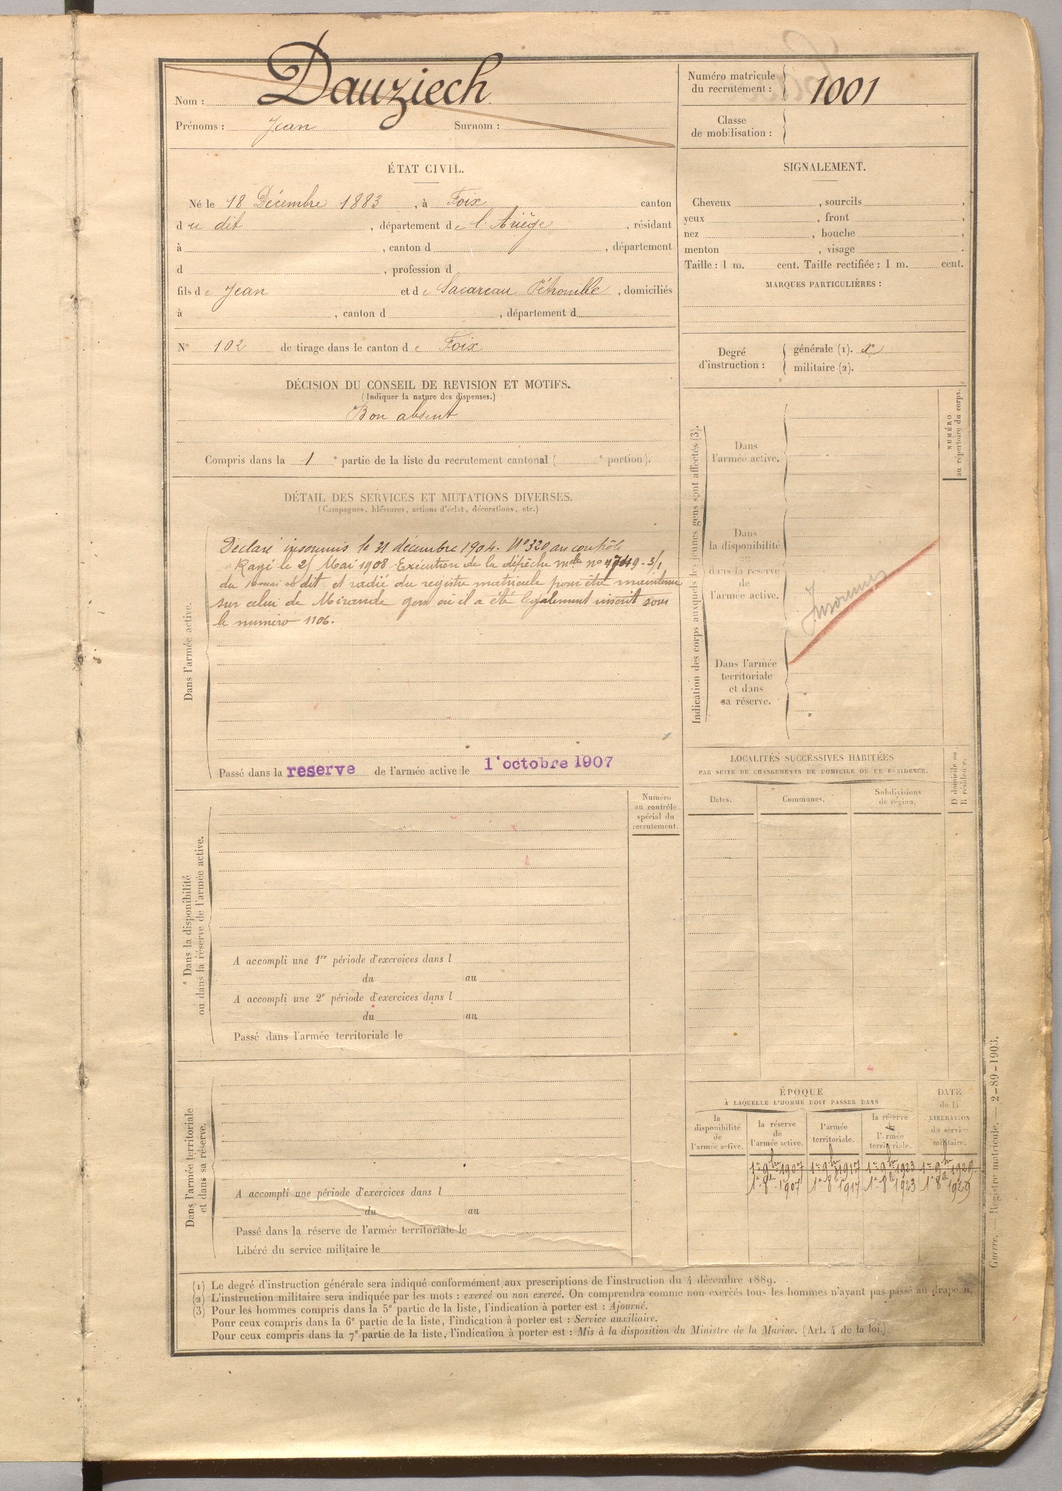 Nom : Dauziech
Prénoms : Jean Surnom :
Numéro matricule du recrutement : 1001
Classe de mobilisation :
ÉTAT CIVIL.
Né le 18 Décembre 1883, à Foix canton
du dit, département de l'Ariège, résidant
à , canton d , département
d , profession d
fils de Jean et de Sacareau Pétronille, domiciliés
à , canton d , département d
N° 102 de tirage dans le canton de Foix
SIGNALEMENT.
Cheveux , sourcils ,
yeux , front ,
nez , bouche ,
menton , visage .
Taille : 1 m. cent. Taille rectifiée : 1 m. cent.
MARQUES PARTICULIÈRES :
Degré d'instruction :
générale (1). x
militaire (2).
DÉCISION DU CONSEIL DE REVISION ET MOTIFS.
(Indiquer la nature des dispenses.)
Bon absent
Compris dans la 1 e partie de la liste du recrutement cantonal ( e portion).
DÉTAIL DES SERVICES ET MUTATIONS DIVERSES.
(Campagnes, blessures, actions d'éclat, décorations, etc.)
Dans l'armée active.
Déclaré insoumis le 31 décembre 1904. N° 320 au contrôle
Rayé le 21 Mai 1908 Exécution de la dépêche mlle n° - 3/1
du mai dit et radié du registre matricule pour être maintenu
sur celui de Mirande gers où il a été légalement inscrit sous
le numéro 1106.
Passé dans la reserve de l'armée active le 1er octobre 1907
Indication des corps auxquels les jeunes gens sont affectés (3).
NUMÉRO
au répertoire du corps.
Dans
l'armée active.
Dans
la disponibilité
ou
dans la réserve
de
l'armée active.
Insoumis
Dans l'armée
territoriale
et dans
sa réserve.
LOCALITÉS SUCCESSIVES HABITÉES
PAR SUITE DE CHANGEMENTS DE DOMICILE OU DE RÉSIDENCE.
Dates. Communes. Subdivisions de région. D domicile ou R résidence.
Numéro
au contrôle
spécial du
recrutement.
Dans la disponibilité
ou dans la réserve de l'armée active.
A accompli une 1re période d'exercices dans l
du au
A accompli une 2e période d'exercices dans l
du au
Passé dans l'armée territoriale le
Dans l'armée territoriale
et dans sa réserve.
A accompli une période d'exercices dans l
du au
Passé dans la réserve de l'armée territoriale le
Libéré du service militaire le
ÉPOQUE
À LAQUELLE L'HOMME DOIT PASSER DANS
la disponibilité de l'armée active.
la réserve de l'armée active.
l'armée territoriale.
la réserve de l'armée territoriale.
DATE de la LIBÉRATION du service militaire.
1er 9bre 1907 1er 9bre 1917 1er 9bre 1923 1er 9bre 1929
1er 8bre 1907 1er 8bre 1917 1er 8bre 1923 1er 8bre 1929
(1) Le degré d'instruction générale sera indiqué conformément aux prescriptions de l'instruction du 4 décembre 1889.
(2) L'instruction militaire sera indiquée par les mots : exercé ou non exercé. On comprendra comme non exercés tous les hommes n'ayant pas passé au drapeau.
(3) Pour les hommes compris dans la 5e partie de la liste, l'indication à porter est : Ajourné.
Pour ceux compris dans la 6e partie de la liste, l'indication à porter est : Service auxiliaire.
Pour ceux compris dans la 7e partie de la liste, l'indication à porter est : Mis à la disposition du Ministre de la Marine. (Art. 4 de la loi.)
Guerre. — Registre matricule. — 2-89-1903.